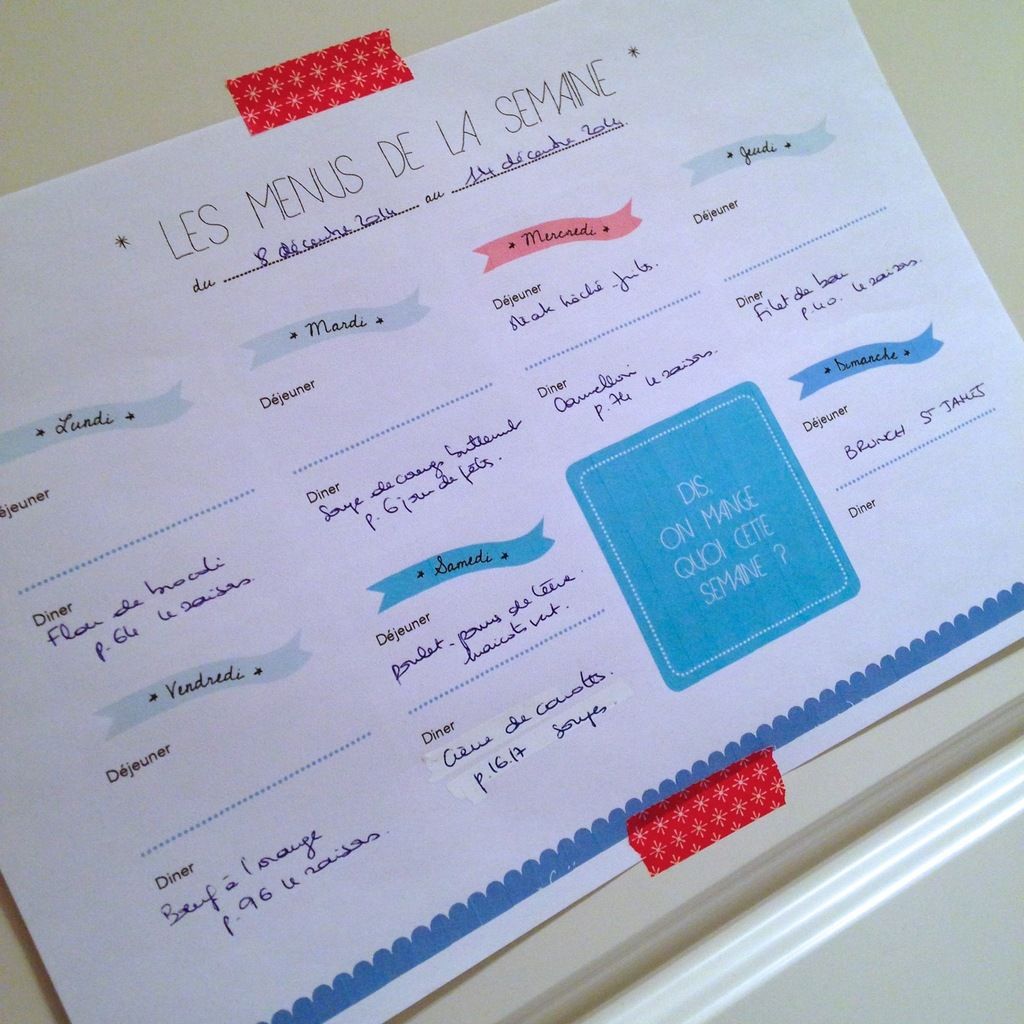 * LES MENUS DE LA SEMAINE *
du 8 décembre 2014 au 14 décembre 2014
* Lundi *
éjeuner
Diner
Flan de brocoli
p.64 4 saisons.
* Mardi *
Déjeuner
Diner
Soupe de courge butternut
p.6 jour de fêtes.
* Mercredi *
Déjeuner
Steak hâché-frites.
Diner
Cannelloni
p.74 4 saisons.
* Jeudi *
Déjeuner
Diner
Filet de
p.40. 4 saisons.
* Vendredi *
Déjeuner
Diner
Bœuf à l'orange
p.96 4 saisons.
* Samedi *
Déjeuner
poulet-poms de terre.
haricots vert.
Diner
Crème de carottes.
p.16.17 Soupes.
DIS,
ON MANGE
QUOI CETTE
SEMAINE ?
* Dimanche *
Déjeuner
BRUNCH ST JAMES
Diner